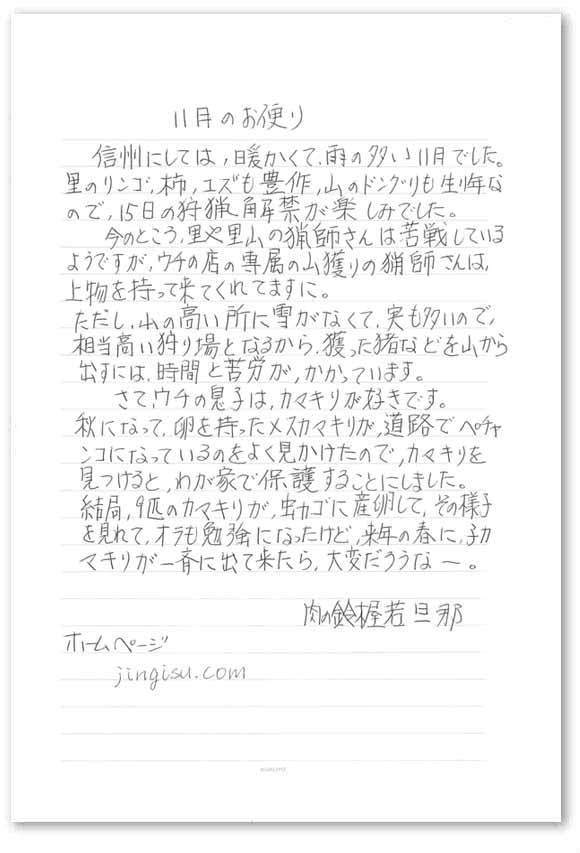 11月のお便り
信州にしては、暖かくて、雨の多い11月でした。
里のリンゴ、柿、ユズも豊作、山のドングリも生り年な
ので、15日の狩猟解禁が楽しみでした。
今のところ、里や里山の猟師さんは苦戦している
ようですが、ウチの店の専属の山獲りの猟師さんは、
上物を持って来てくれてますに。
ただし、山の高い所に雪がなくて、実も多いので、
相当高い狩り場となるから、獲った猪などを山から
出すには、時間と苦労が、かかっています。
さて、ウチの息子は、カマキリが好きです。
秋になって、卵を持ったメスカマキリが、道路でペチャ
ンコになっているのをよく見かけたので、カマキリを
見つけると、わが家で保護することにしました。
結局、9匹のカマキリが、虫カゴに産卵して、その様子
を見れて、オラも勉強になったけど、来年の春に、子カ
マキリが一斉に出て来たら、大変だろうなー。
肉の鈴木屋若旦那
ホームページ
jingisu.com